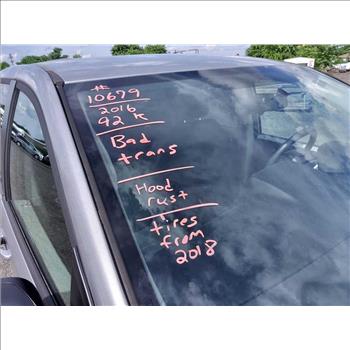 #
10679
2016
92 K
Bad
trans
Hood
rust
tires
from
2018